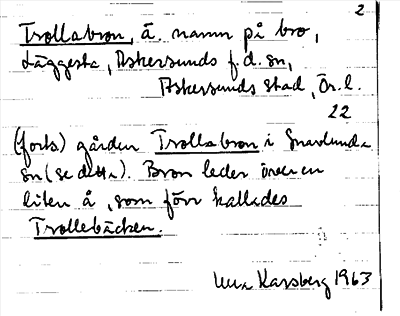 2
Trollabron, ä. namn på bro,
Läggesta, Askersunds f.d. sn,
Askersunds stad, Ör. l.
22
(forts) gården Trollabron i Snavlunda
sn (se detta). Bron leder över en
liten å, som förr kallades
Trollebäcken.
Karsberg 1963